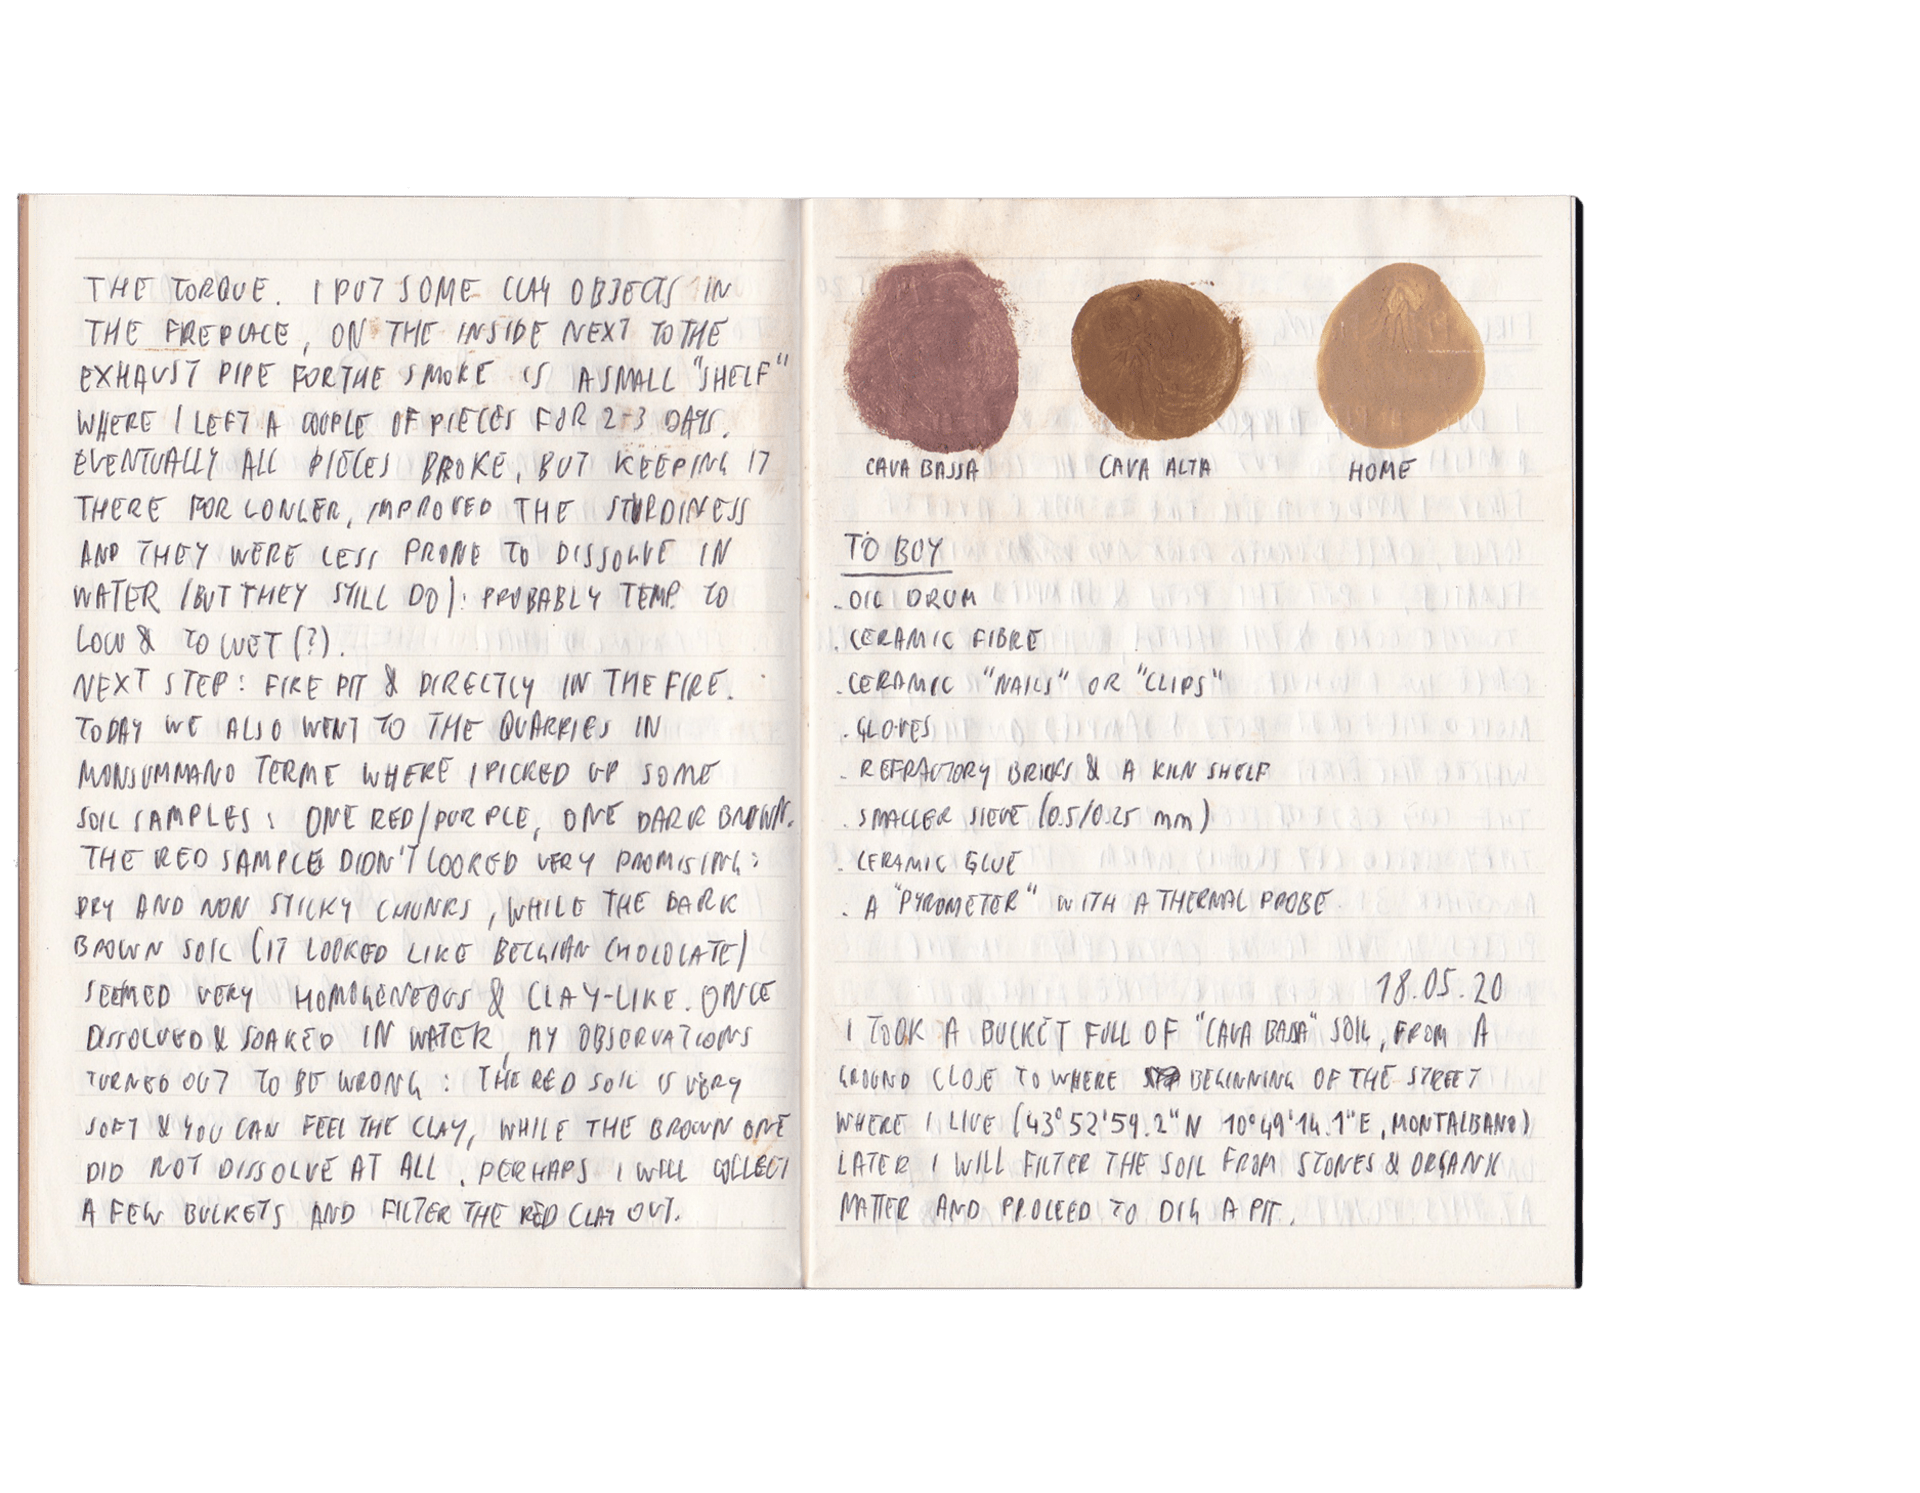 THE TORQUE. I PUT SOME CLAY OBJECTS IN
THE FIREPLACE, ON THE INSIDE NEXT TO THE
EXHAUST PIPE FOR THE SMOKE IS A SMALL "SHELF"
WHERE I LEFT A COUPLE OF PIECES FOR 2-3 DAYS.
EVENTUALLY ALL PIECES BROKE, BUT KEEPING IT
THERE FOR LONGER, IMPROVED THE STURDINESS
AND THEY WERE LESS PRONE TO DISSOLVE IN
WATER (BUT THEY STILL DO): PROBABLY TEMP. TO
LOW & TO WET (?).
NEXT STEP: FIRE PIT & DIRECTLY IN THE FIRE.
TODAY WE ALSO WENT TO THE QUARRIES IN
MONSUMMANO TERME WHERE I PICKED UP SOME
SOIL SAMPLES: ONE RED/PURPLE, ONE DARK BROWN.
THE RED SAMPLE DIDN'T LOOKED VERY PROMISING:
DRY AND NON STICKY CHUNKS, WHILE THE DARK
BROWN SOIL (IT LOOKED LIKE BELGIAN CHOCOLATE)
SEEMED VERY HOMOGENEOUS & CLAY-LIKE. ONCE
DISSOLVED & SOAKED IN WATER, MY OBSERVATIONS
TURNED OUT TO BE WRONG: THE RED SOIL IS VERY
SOFT & YOU CAN FEEL THE CLAY, WHILE THE BROWN ONE
DID NOT DISSOLVE AT ALL. PERHAPS I WILL COLLECT
A FEW BUCKETS AND FILTER THE RED CLAY OUT.
CAVA BASSA CAVA ALTA HOME
TO BUY
. OIL DRUM
. CERAMIC FIBRE
. CERAMIC "NAILS" OR "CLIPS"
. GLOVES
. REFRACTORY BRICKS & A KILN SHELF
. SMALLER SIEVE (0.5/0.25 mm)
. CERAMIC GLUE
. A "PYROMETER" WITH A THERMAL PROBE
18.05.20
I TOOK A BUCKET FULL OF "CAVA BASSA" SOIL, FROM A
GROUND CLOSE TO WHERE BEGINNING OF THE STREET
WHERE I LIVE (43°52'59.2"N 10°49'14.1"E, MONTALBANO)
LATER I WILL FILTER THE SOIL FROM STONES & ORGANIC
MATTER AND PROCEED TO DIG A PIT.